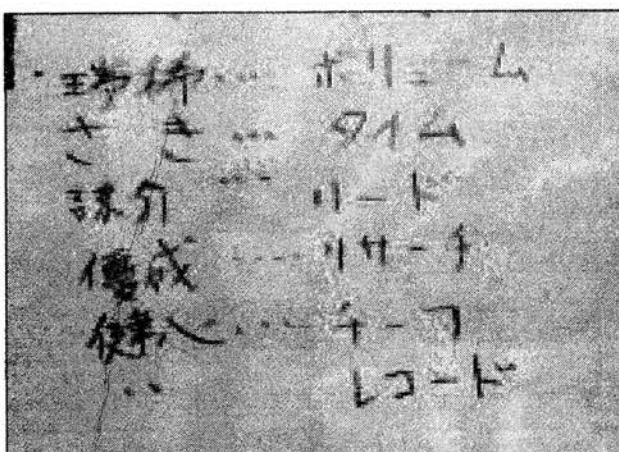 瑞神… ボリューム
さき… タイム
諒介… リード
優成… リサーチ
健人… チーフ
〃 レコード